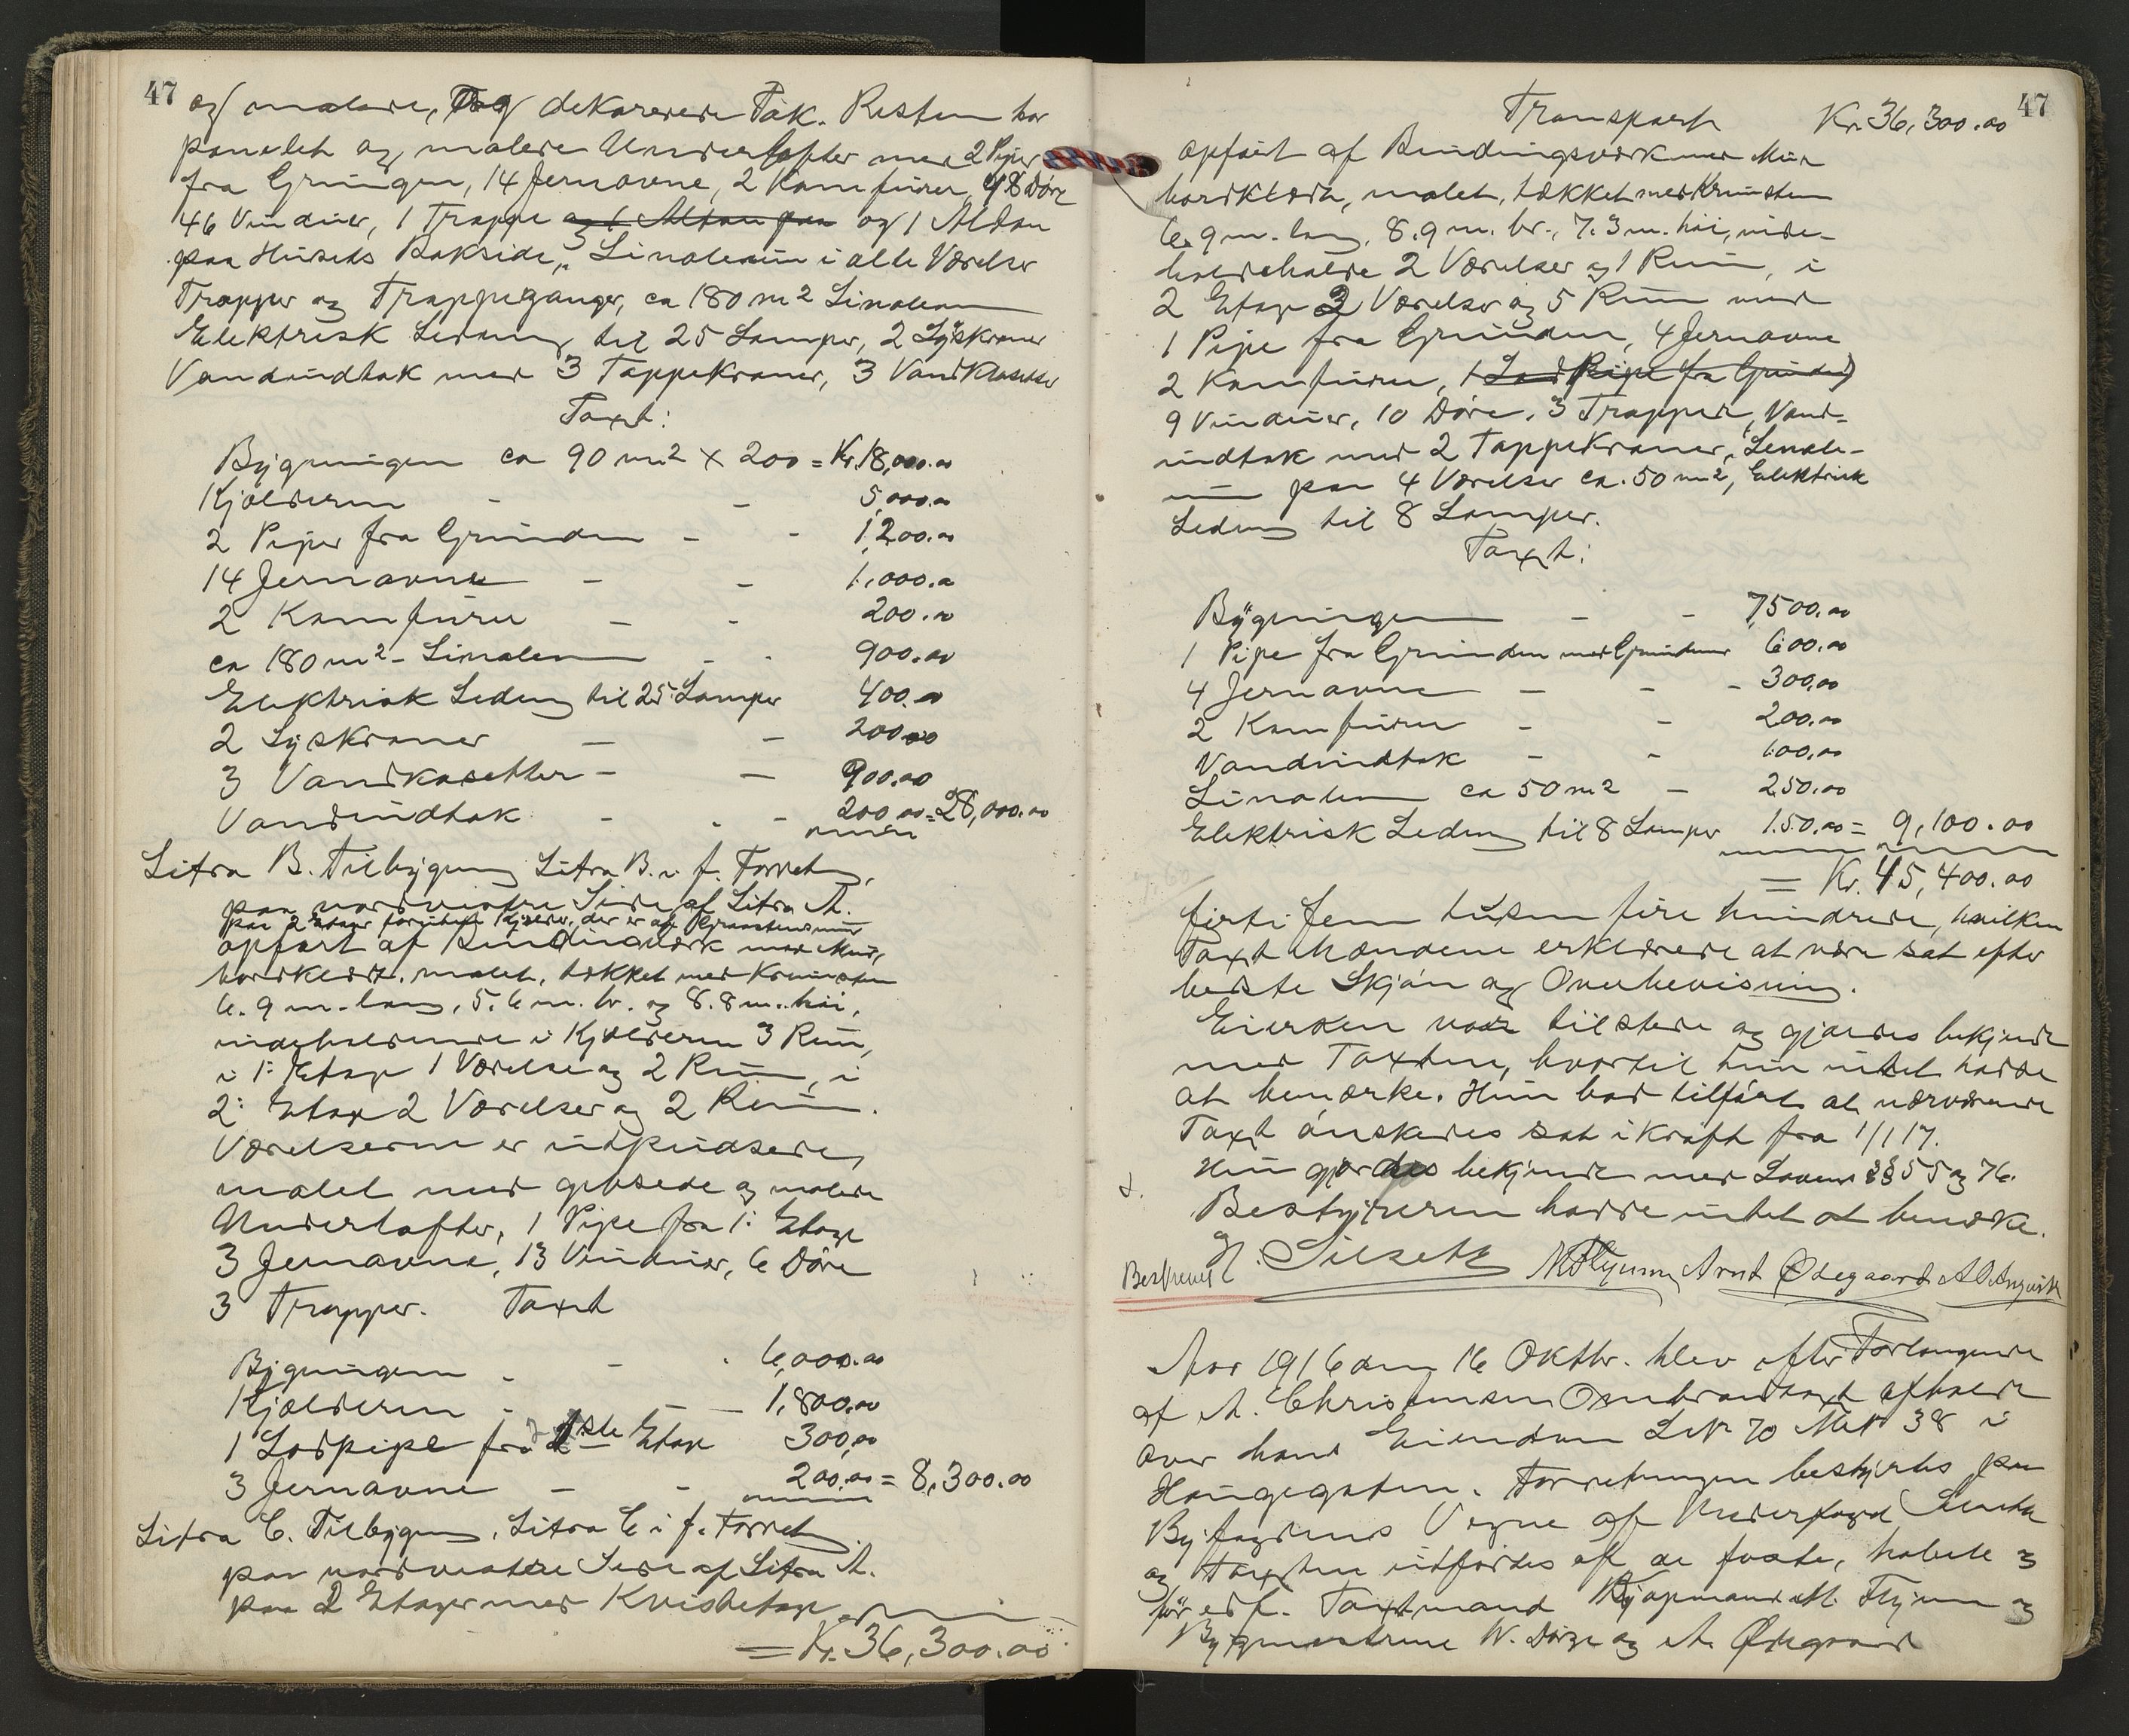 47
og malede, og dekorerede Tak. Resten har
panelet og malede Underlofter med 2 Piper
fra Grunden, 14 Jernovne, 2 Komfurer, 48 Døre
46 Vinduer, 1 Trappe og 1 Altan paa og 1 Altan
paa Husets Bakside, Linoleum i alle Værelser
Trapper og Trappegange, ca 180 m2 Linoleum
Elektrisk Ledning til 25 Lamper, 2 Lyskroner
Vandindtak med 3 Tappekraner, 3 Vandklosetter
Taxt:
Bygningen ca 90 m2 x 200 = Kr. 18,000.00
Kjælderen - - 5,000.00
2 Piper fra Grunden - - 1,200.00
14 Jernovne - - 1,000.00
2 Komfurer - - 200.00
ca 180 m2 - Linoleum - - 900.00
Elektrisk Ledning til 25 Lamper 400.00
2 Lyskroner - - 200.00
3 Vandkosetter - - 900.00
Vandindtak - - - 200.00 = 28,000.00
Litra B. Tilbygning Litra B. i f. Forretn.
paa nordvestre Side af Litra A.
paa 2 Etager foruden Kjælder, der er af Graastensmur
opført af Bindingsværk med Mur,
bordklædt, malet, tækket med Krumsten
6.9 m. lang, 5.6 m. br. og 8.8 m. høi,
indeholdende i Kjælderen 3 Rum,
i 1: Etage 1 Værelse og 2 Rum, i
2: Etage 2 Værelser og 2 Rum.
Værelserne er utpudsede,
malet med gibsede og malede
Underlofter, 1 Pipe fra 1: Etage
3 Jernovne, 13 Vinduer, 6 Døre
3 Trapper. Taxt
Bygningen - - 6,000.00
Kjælderen - - 1,800.00
1 Lodpipe fra 1ste Etage 300.00
3 Jernovne - - 200.00 = 8,300.00
Litra C. Tilbygning, Litra C i f. Forretn.
paa nordvestre Side af Litra A.
paa 2 Etager med Kvistetage
= Kr. 36,300.00
47
Transport Kr. 36,300.00
opført af Bindingsværk med Mur
bordklædt, malet, tækket med Krumsten
6.9 m. lang, 8.9 m. br., 7.3 m. høi, inde-
holdende 2 Værelser og 1 Rum, i
2 Etage 2 Værelser og 5 Rum med
1 Pipe fra Grunden, 4 Jernovne
2 Komfurer, 1 Lod Pipe fra Grunden
9 Vinduer, 10 Døre, 3 Trapper, Vand-
indtak med 2 Tappekraner, Linole-
um paa 4 Værelser ca. 50 m2, Elektrisk
Ledning til 8 Lamper.
Taxt:
Bygningen - - 7,500.00
1 Pipe fra Grunden med Grunden 600.00
4 Jernovne - - - 300.00
2 Komfurer - - 200.00
Vandindtak - - 100.00
Linoleum ca 50 m2 - 250.00
Elektrisk Ledning til 8 Lamper 150.00 = 9,100.00
= Kr. 45,400.00
firti fem tusen fire hundrede, hvilken
Taxt Mændene erklærede at være sat efter
bedste Skjøn og Overbevisning.
Eiersken var tilstede og gjordes bekjendt
med Taxten, hvortil hun intet hadde
at bemerke. Hun bad tilført at nærværende
Taxt ønskedes sat i kraft fra 1/1 17.
Hun gjordes bekjendt med Lovens §§ 55 og 76.
Bestyreren hadde intet at bemerke.
Silseth M Flyum Arnt Ødegaard
Beskrevet
Aar 1916 den 16 Oktbr. blev efter Forlangende
af A. Christensen Ombrandtaxt afholdt
over hans Eiendom L.No 70 Mat No 38 i
Haugegaten. Forretningen bestyrtes paa
Byfogdens Vegne af Underfogd
og Taxten utførtes af de faste, habile og
før edf. Taxtmænd Kjøpmand M. Flyum og
Bygmestrene N. Døze og A. Ødegaard